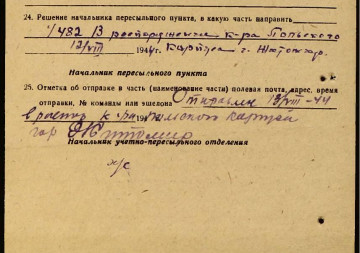 24. Решение начальника пересыльного пункта, в какую часть направить
1/482 В распоряжение к-ра Польского
12/VIII 1944 г.
Начальник пересыльного пункта
25. Отметка об отправке в часть (наименование части) полевая почта, адрес, время
отправки, № команды или эшелона Отправлен 12/VIII-44
в распор к-ра Польской
гор Житомир
Начальник учетно-пересыльного отделения